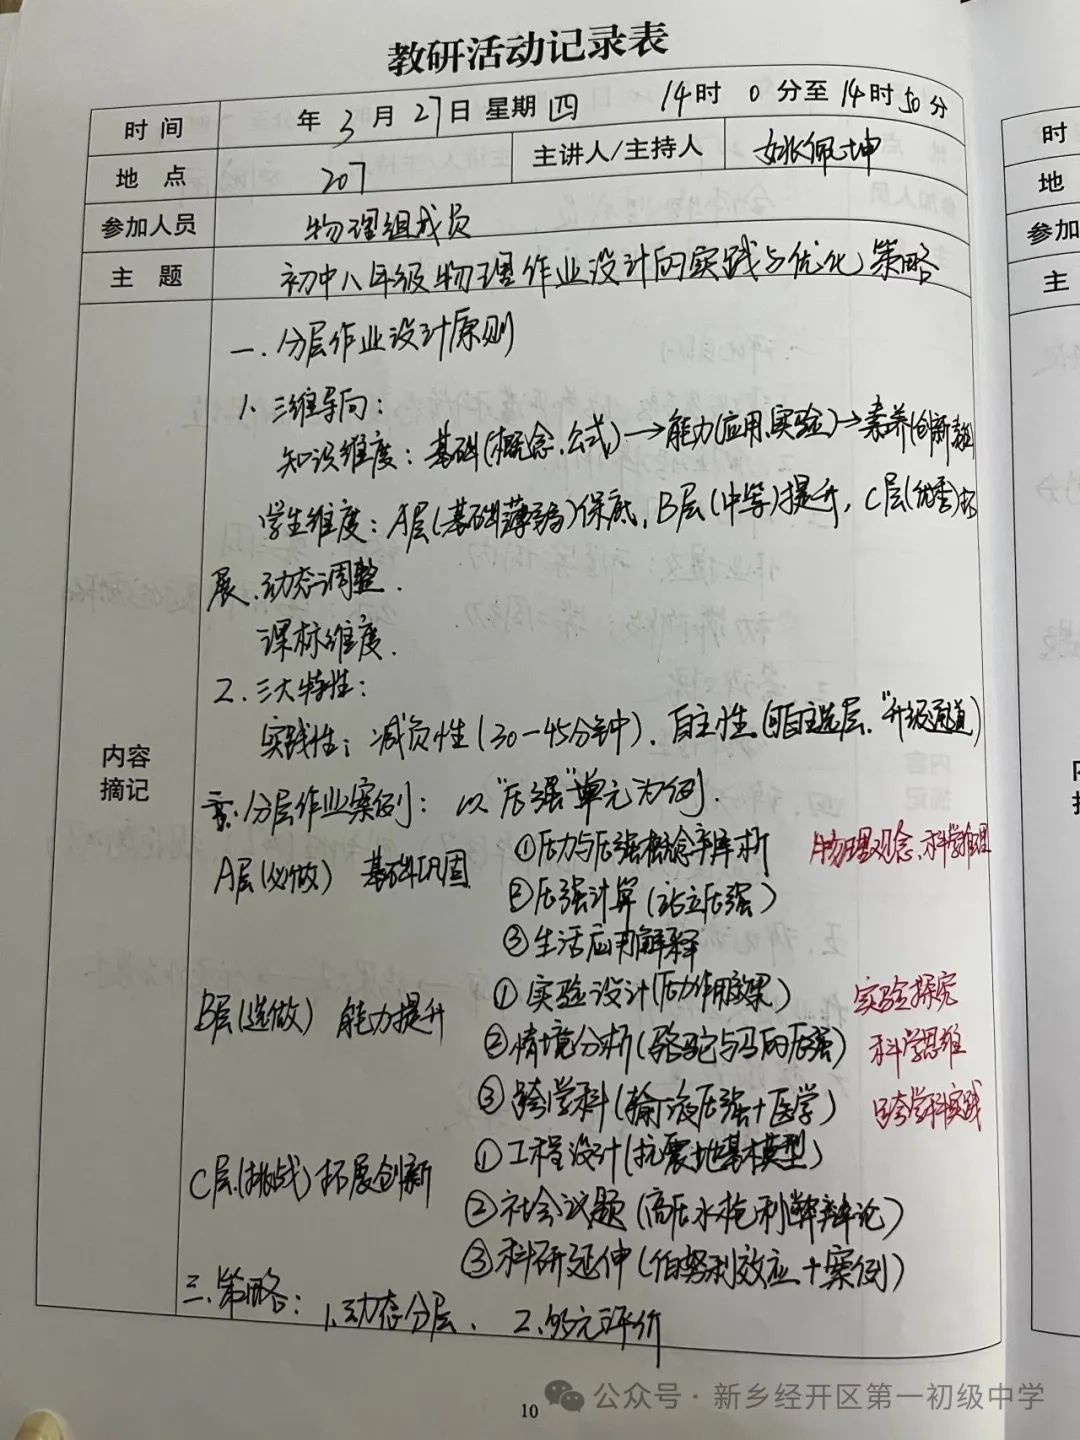 教研活动记录表
时间 年3月27日 星期四 14时0分至14时50分
地点 207 主讲人/主持人 姚佩坤
参加人员 物理组成员
主题 初中八年级物理作业设计的实践与优化策略
内容摘记
一.分层作业设计原则
1.三维导向:
知识维度:基础(概念、公式)→能力(应用、实验)→素养(创新
学生维度:A层(基础薄弱)保底,B层(中等)提升,C层(优秀)拓
展.动态调整.
课标维度.
2.三大特性:
实践性;减负性(30-45分钟).自主性(可自主选层."升级通道)
分层作业案例:以"压强"单元为例.
A层(必做) 基础巩固 ①压力与压强概念辛库析 物理观念、科学推理
②压强计算(站立压强)
③生活应用解释
B层(选做) 能力提升 ①实验设计(压力作用效果) 实验探究
②情境分析(骆驼与马的压强) 科学思维
③跨学科(输液压强+医学) 跨学科实践
C层(挑战)拓展创新 ①工程设计(抗震地基模型)
②社会议题(高压水枪利弊辩论)
③科研延伸(伯努利效应+案例)
三、策略:1.动态分层、2.多元评价
10
公众号·新乡经开区第一初级中学
时
地
参加
主